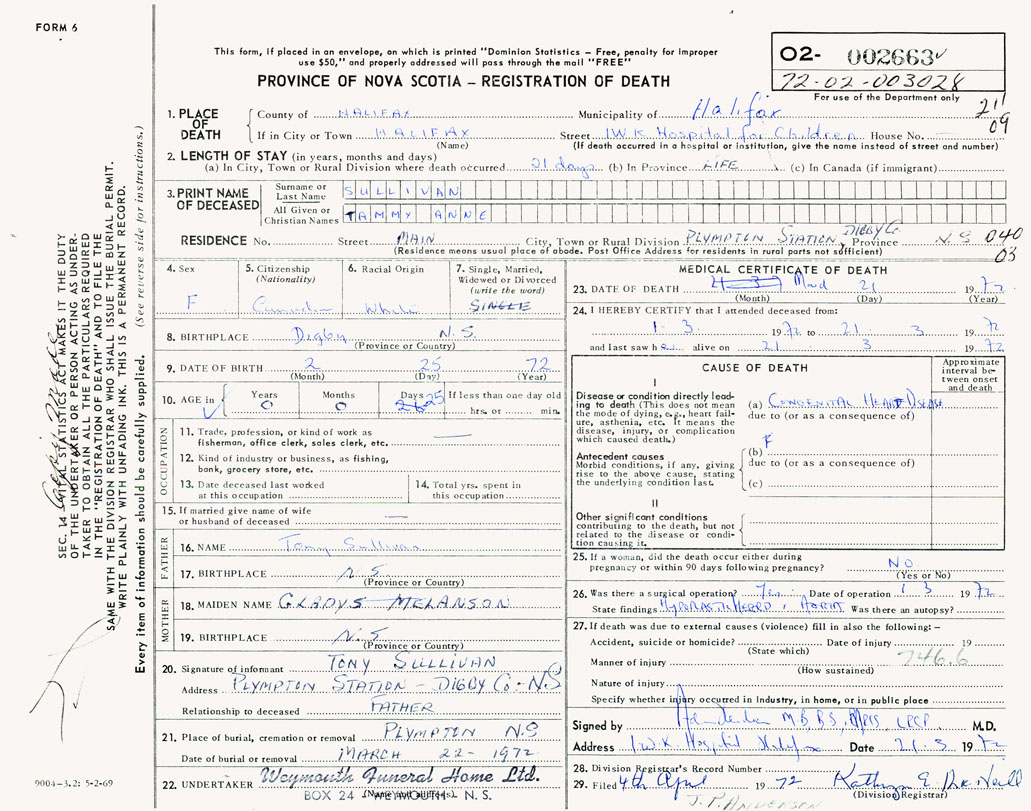 FORM 6
This form, if placed in an envelope, on which is printed "Dominion Statistics – Free, penalty for improper
use $50," and properly addressed will pass through the mail "FREE"
PROVINCE OF NOVA SCOTIA – REGISTRATION OF DEATH
02- 002663
72-02-003028
For use of the Department only
21
09
1. PLACE OF DEATH
County of HALIFAX Municipality of Halifax
If in City or Town HALIFAX Street IWK Hospital for Children House No.
(Name) (If death occurred in a hospital or institution, give the name instead of street and number)
2. LENGTH OF STAY (in years, months and days)
(a) In City, Town or Rural Division where death occurred 21 days (b) In Province LIFE (c) In Canada (if immigrant)
3. PRINT NAME OF DECEASED
Surname or Last Name SULLIVAN
All Given or Christian Names TAMMY ANNE
RESIDENCE No. Street MAIN City, Town or Rural Division PLYMPTON STATION, DIGBY Co. Province N.S. 040
(Residence means usual place of abode. Post Office Address for residents in rural parts not sufficient) 03
4. Sex
F
5. Citizenship
(Nationality)
Canadian
6. Racial Origin
White
7. Single, Married,
Widowed or Divorced
(write the word)
SINGLE
8. BIRTHPLACE Digby N.S.
(Province or Country)
9. DATE OF BIRTH 2 25 72
(Month) (Day) (Year)
10. AGE in Years 0 Months 0 Days 25 If less than one day old
hrs. or min.
OCCUPATION
11. Trade, profession, or kind of work as
fisherman, office clerk, sales clerk, etc. —
12. Kind of industry or business, as fishing,
bank, grocery store, etc.
13. Date deceased last worked
at this occupation
14. Total yrs. spent in
this occupation
15. If married give name of wife
or husband of deceased —
FATHER
16. NAME Tony Sullivan
17. BIRTHPLACE N.S.
(Province or Country)
MOTHER
18. MAIDEN NAME GLADYS MELANSON
19. BIRTHPLACE N.S.
(Province or Country)
20. Signature of informant TONY SULLIVAN
Address PLYMPTON STATION – DIGBY Co – N.S
Relationship to deceased FATHER
21. Place of burial, cremation or removal PLYMPTON N.S
Date of burial or removal MARCH 22 - 1972
22. UNDERTAKER Weymouth Funeral Home Ltd.
(Name and address)
BOX 24 WEYMOUTH N. S.
MEDICAL CERTIFICATE OF DEATH
23. DATE OF DEATH March 21 1972
(Month) (Day) (Year)
24. I HEREBY CERTIFY that I attended deceased from:
1. 3 1972 to 21 3 1972
and last saw h alive on 21 3 1972
CAUSE OF DEATH
Approximate
interval be-
tween onset
and death
I
Disease or condition directly lead-
ing to death (This does not mean
the mode of dying, e.g., heart fail-
ure, asthenia, etc. It means the
disease, injury, or complication
which caused death.)
(a) CONGENITAL HEART DISEASE
due to (or as a consequence of)
Antecedent causes
Morbid conditions, if any, giving
rise to the above cause, stating
the underlying condition last.
(b)
due to (or as a consequence of)
(c)
II
Other significant conditions
contributing to the death, but not
related to the disease or condi-
tion causing it.
25. If a woman, did the death occur either during
pregnancy or within 90 days following pregnancy? NO
(Yes or No)
26. Was there a surgical operation? Yes Date of operation 1 3 1972
State findings Was there an autopsy?
27. If death was due to external causes (violence) fill in also the following: –
Accident, suicide or homicide? Date of injury 19
(State which)
Manner of injury 746.6
(How sustained)
Nature of injury
Specify whether injury occurred in Industry, in home, or in public place
Signed by M.B.B.S, MRCS, LRCP M.D.
Address IWK Hospital Halifax Date 21.3 1972
28. Division Registrar's Record Number
29. Filed 4th April 1972
(Division Registrar)
SEC. 14 VITAL STATISTICS ACT MAKES IT THE DUTY
OF THE UNDERTAKER OR PERSON ACTING AS UNDER-
TAKER TO OBTAIN ALL THE PARTICULARS REQUIRED
IN THE "REGISTRATION OF DEATH" AND TO FILE THE
SAME WITH THE DIVISION REGISTRAR WHO SHALL ISSUE THE BURIAL PERMIT.
WRITE PLAINLY WITH UNFADING INK. THIS IS A PERMANENT RECORD.
Every item of information should be carefully supplied. (See reverse side for instructions.)
9004-3.2: 5-2-69